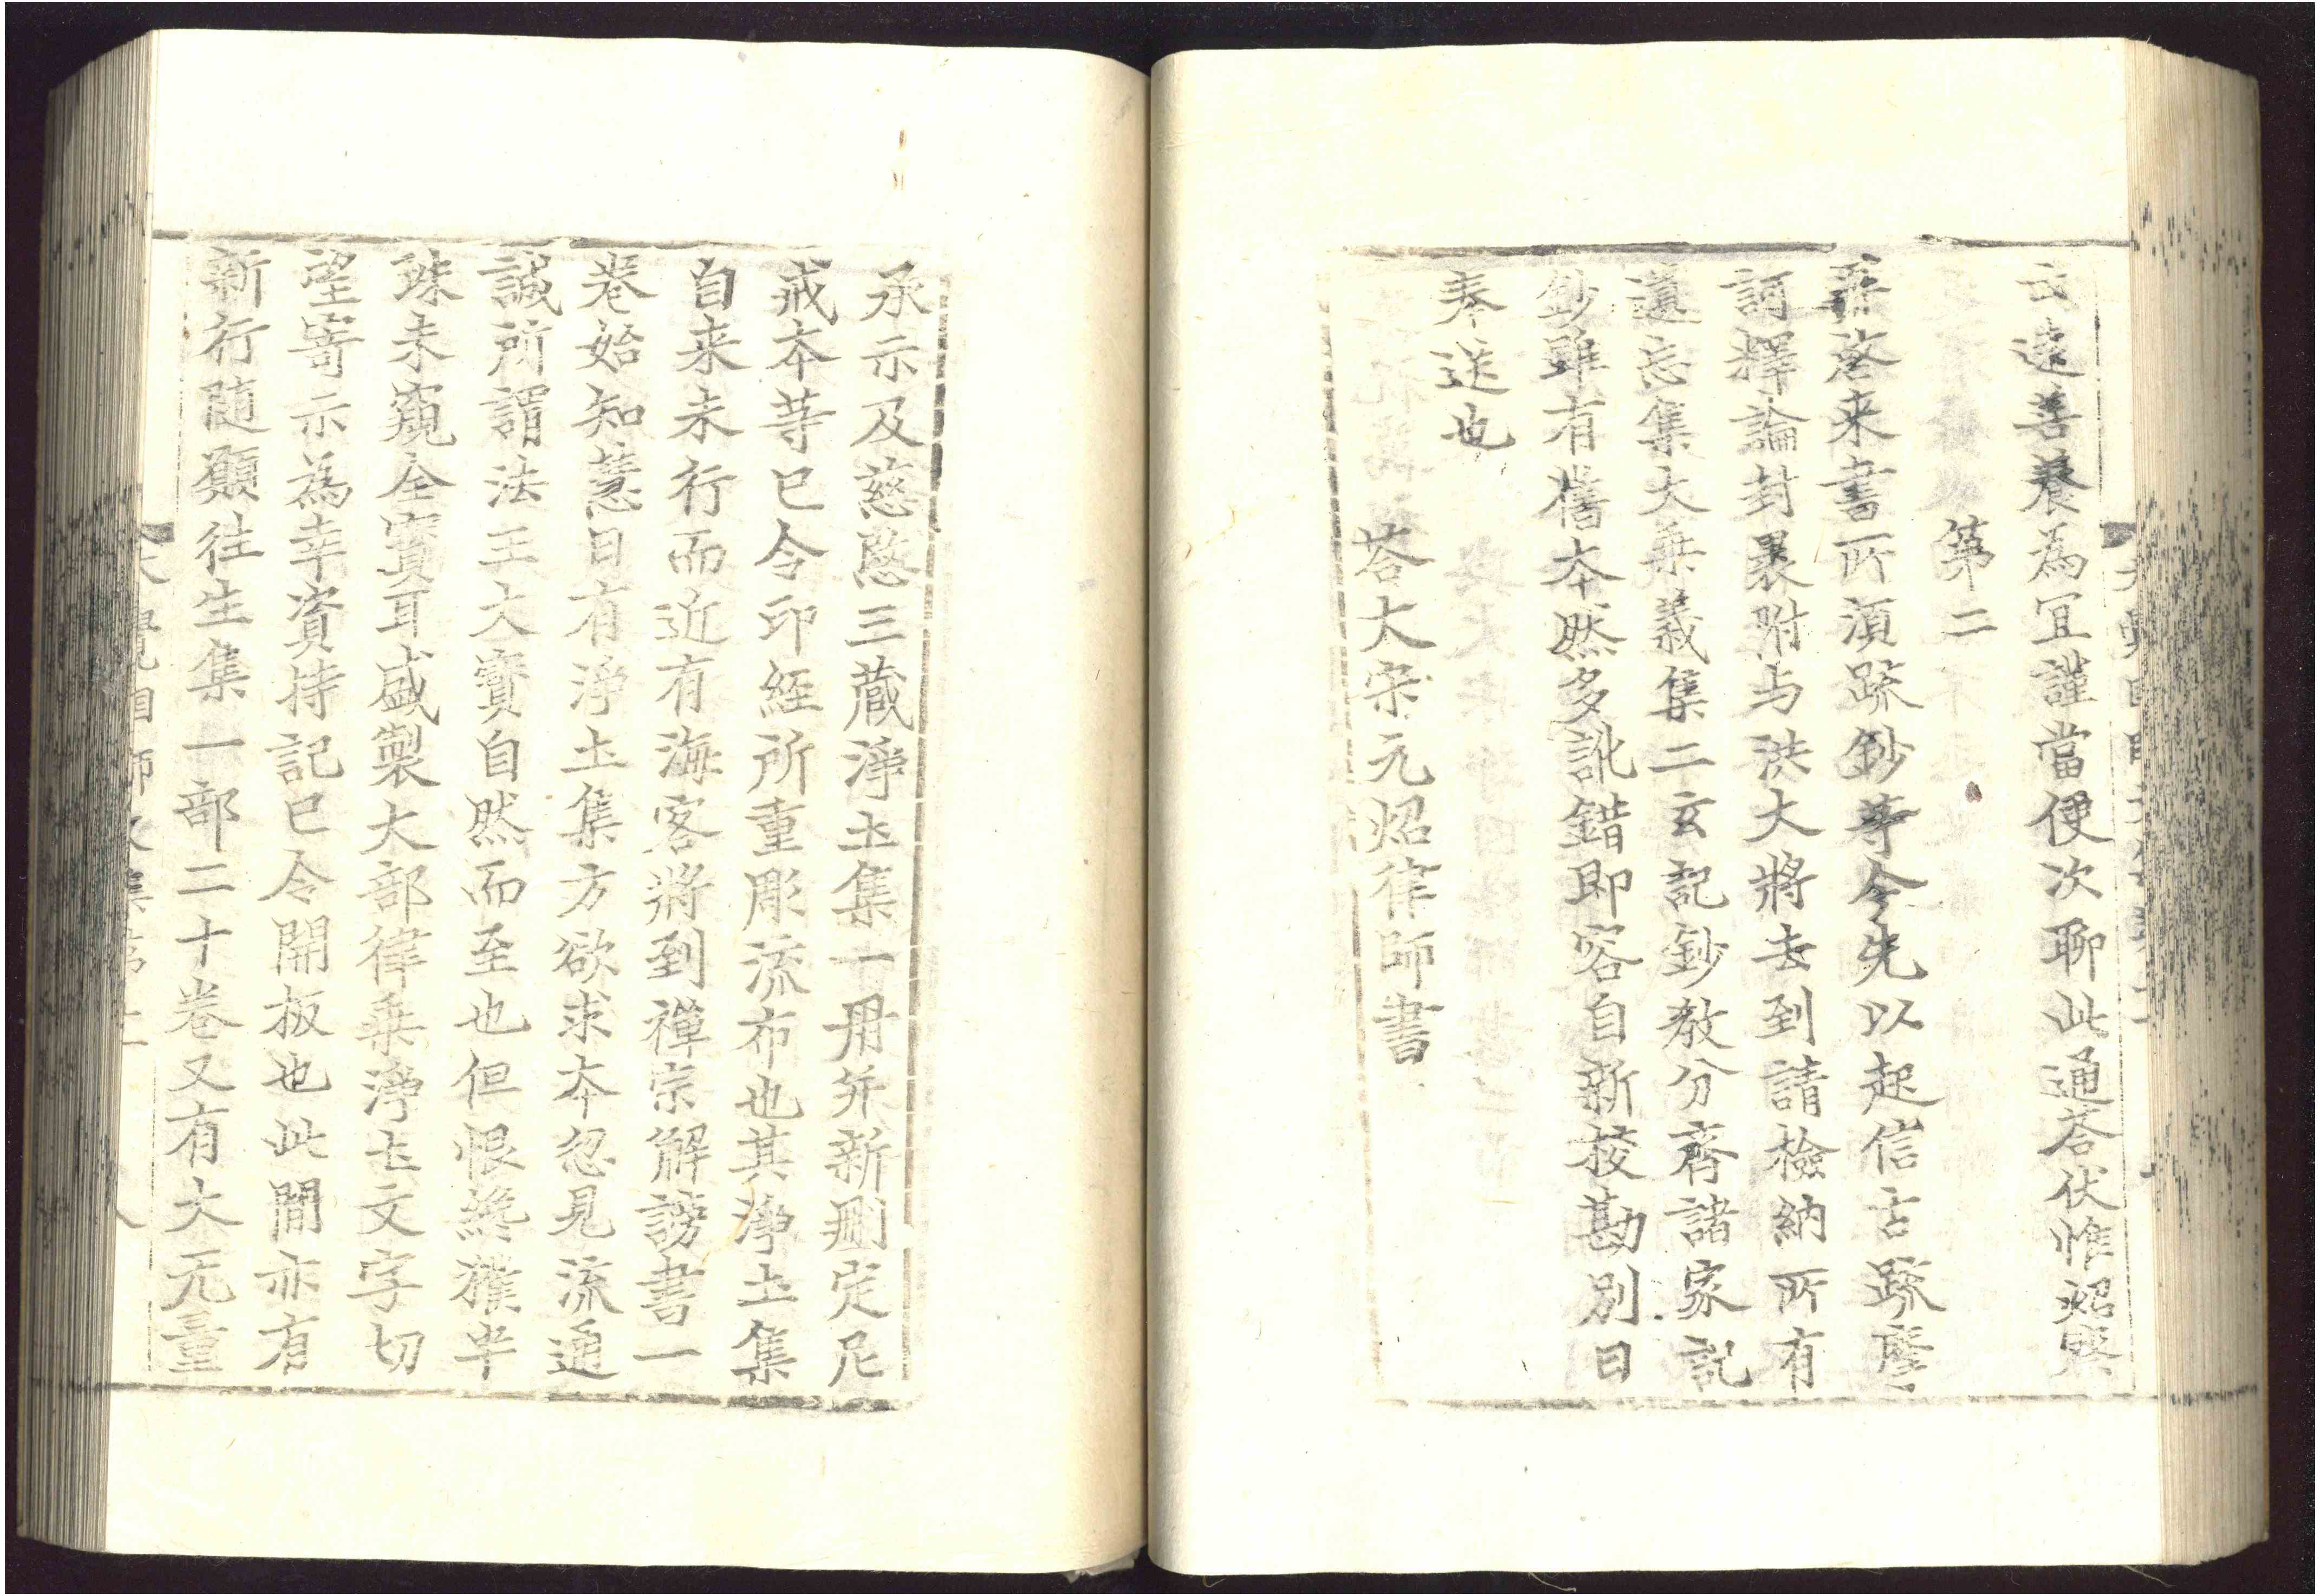 玄遠善養為冝謹當便次聊此通荅伏惟炤鑒
第二
兼蒙来書所湏䟽鈔䓁令先以起信古䟽摩
訶釋論封褁附与洪大將去到請檢納所有
遺忘集大乗義集二玄記鈔教分齊諸家記
鈔雖有舊本然多訛錯即容自新挍勘別日
奉送也
荅大宋元炤律師書
承示及慈愍三藏淨土集一冊并新刪㝎尼
戒本䓁已令印經所重彫流布也其淨土集
自来未行而近有海客將到禪宗解謗書一
卷始知慧日有淨土集方欲求本忽見流通
誠所謂法王大寶自然而至也但恨終穫半
珠未窺全寶耳盛製大部律乗淨土文字切
望寄示為幸資持記已令開板也此間亦有
新行隨願往生集一部二十卷又有大无量
大覺國師文集第十一